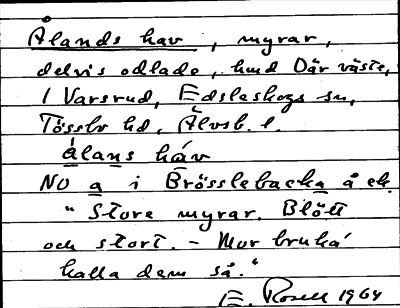 Ålands hav, myrar,
delvis odlade, hmd Där väste,
I Varsrud, Edsleskogs sn,
Tössbo hd, Älvsb. l.
álans háv
NO a i Brösslebacka å ek.
"Stora myrar. Blött
och stort. – Mor bruka'
kalla dem så."
E. Rosell 1964